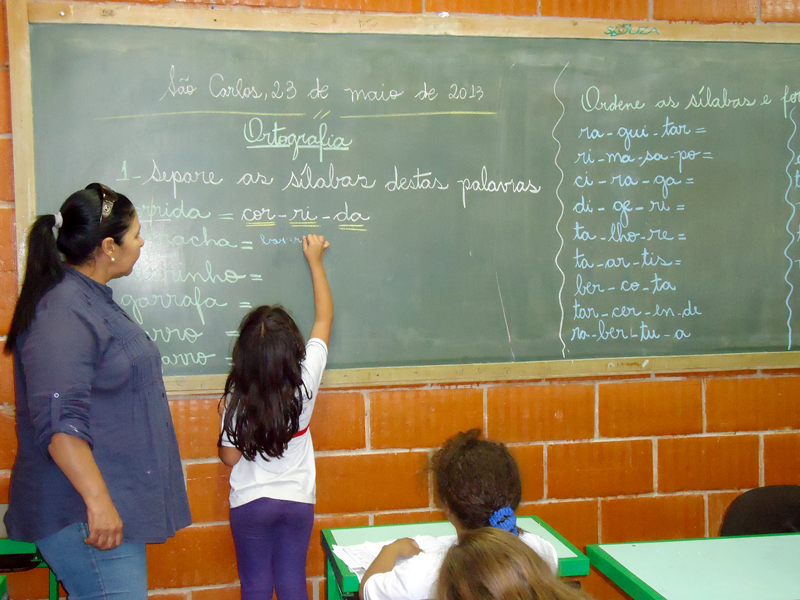 São Carlos, 23 de maio de 2013
Ortografia
1-Separe as sílabas destas palavras
= cor-ri-da
=
=
garrafa =
Ordene as sílabas e
ra-gui-tar=
ri-ma-sa-po=
ci-ra-ga=
di-ge-ri=
ta-lho-re=
ta-ar-tis=
ber-co-ta
tar-cer-en-de
ra-ber-tu-a